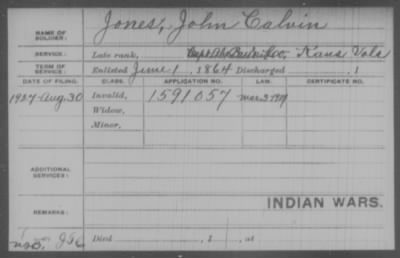 Jones, John Calvin
NAME OF SOLDIER:
SERVICE: Late rank, Kans Vols
TERM OF SERVICE: Enlisted June 1, 1864 Discharged , 1
DATE OF FILING. CLASS. APPLICATION NO. LAW. CERTIFICATE NO.
1927-Aug. 30 Invalid, 1591057
Widow,
Minor,
ADDITIONAL SERVICES:
INDIAN WARS.
REMARKS:
Died , 1 , at